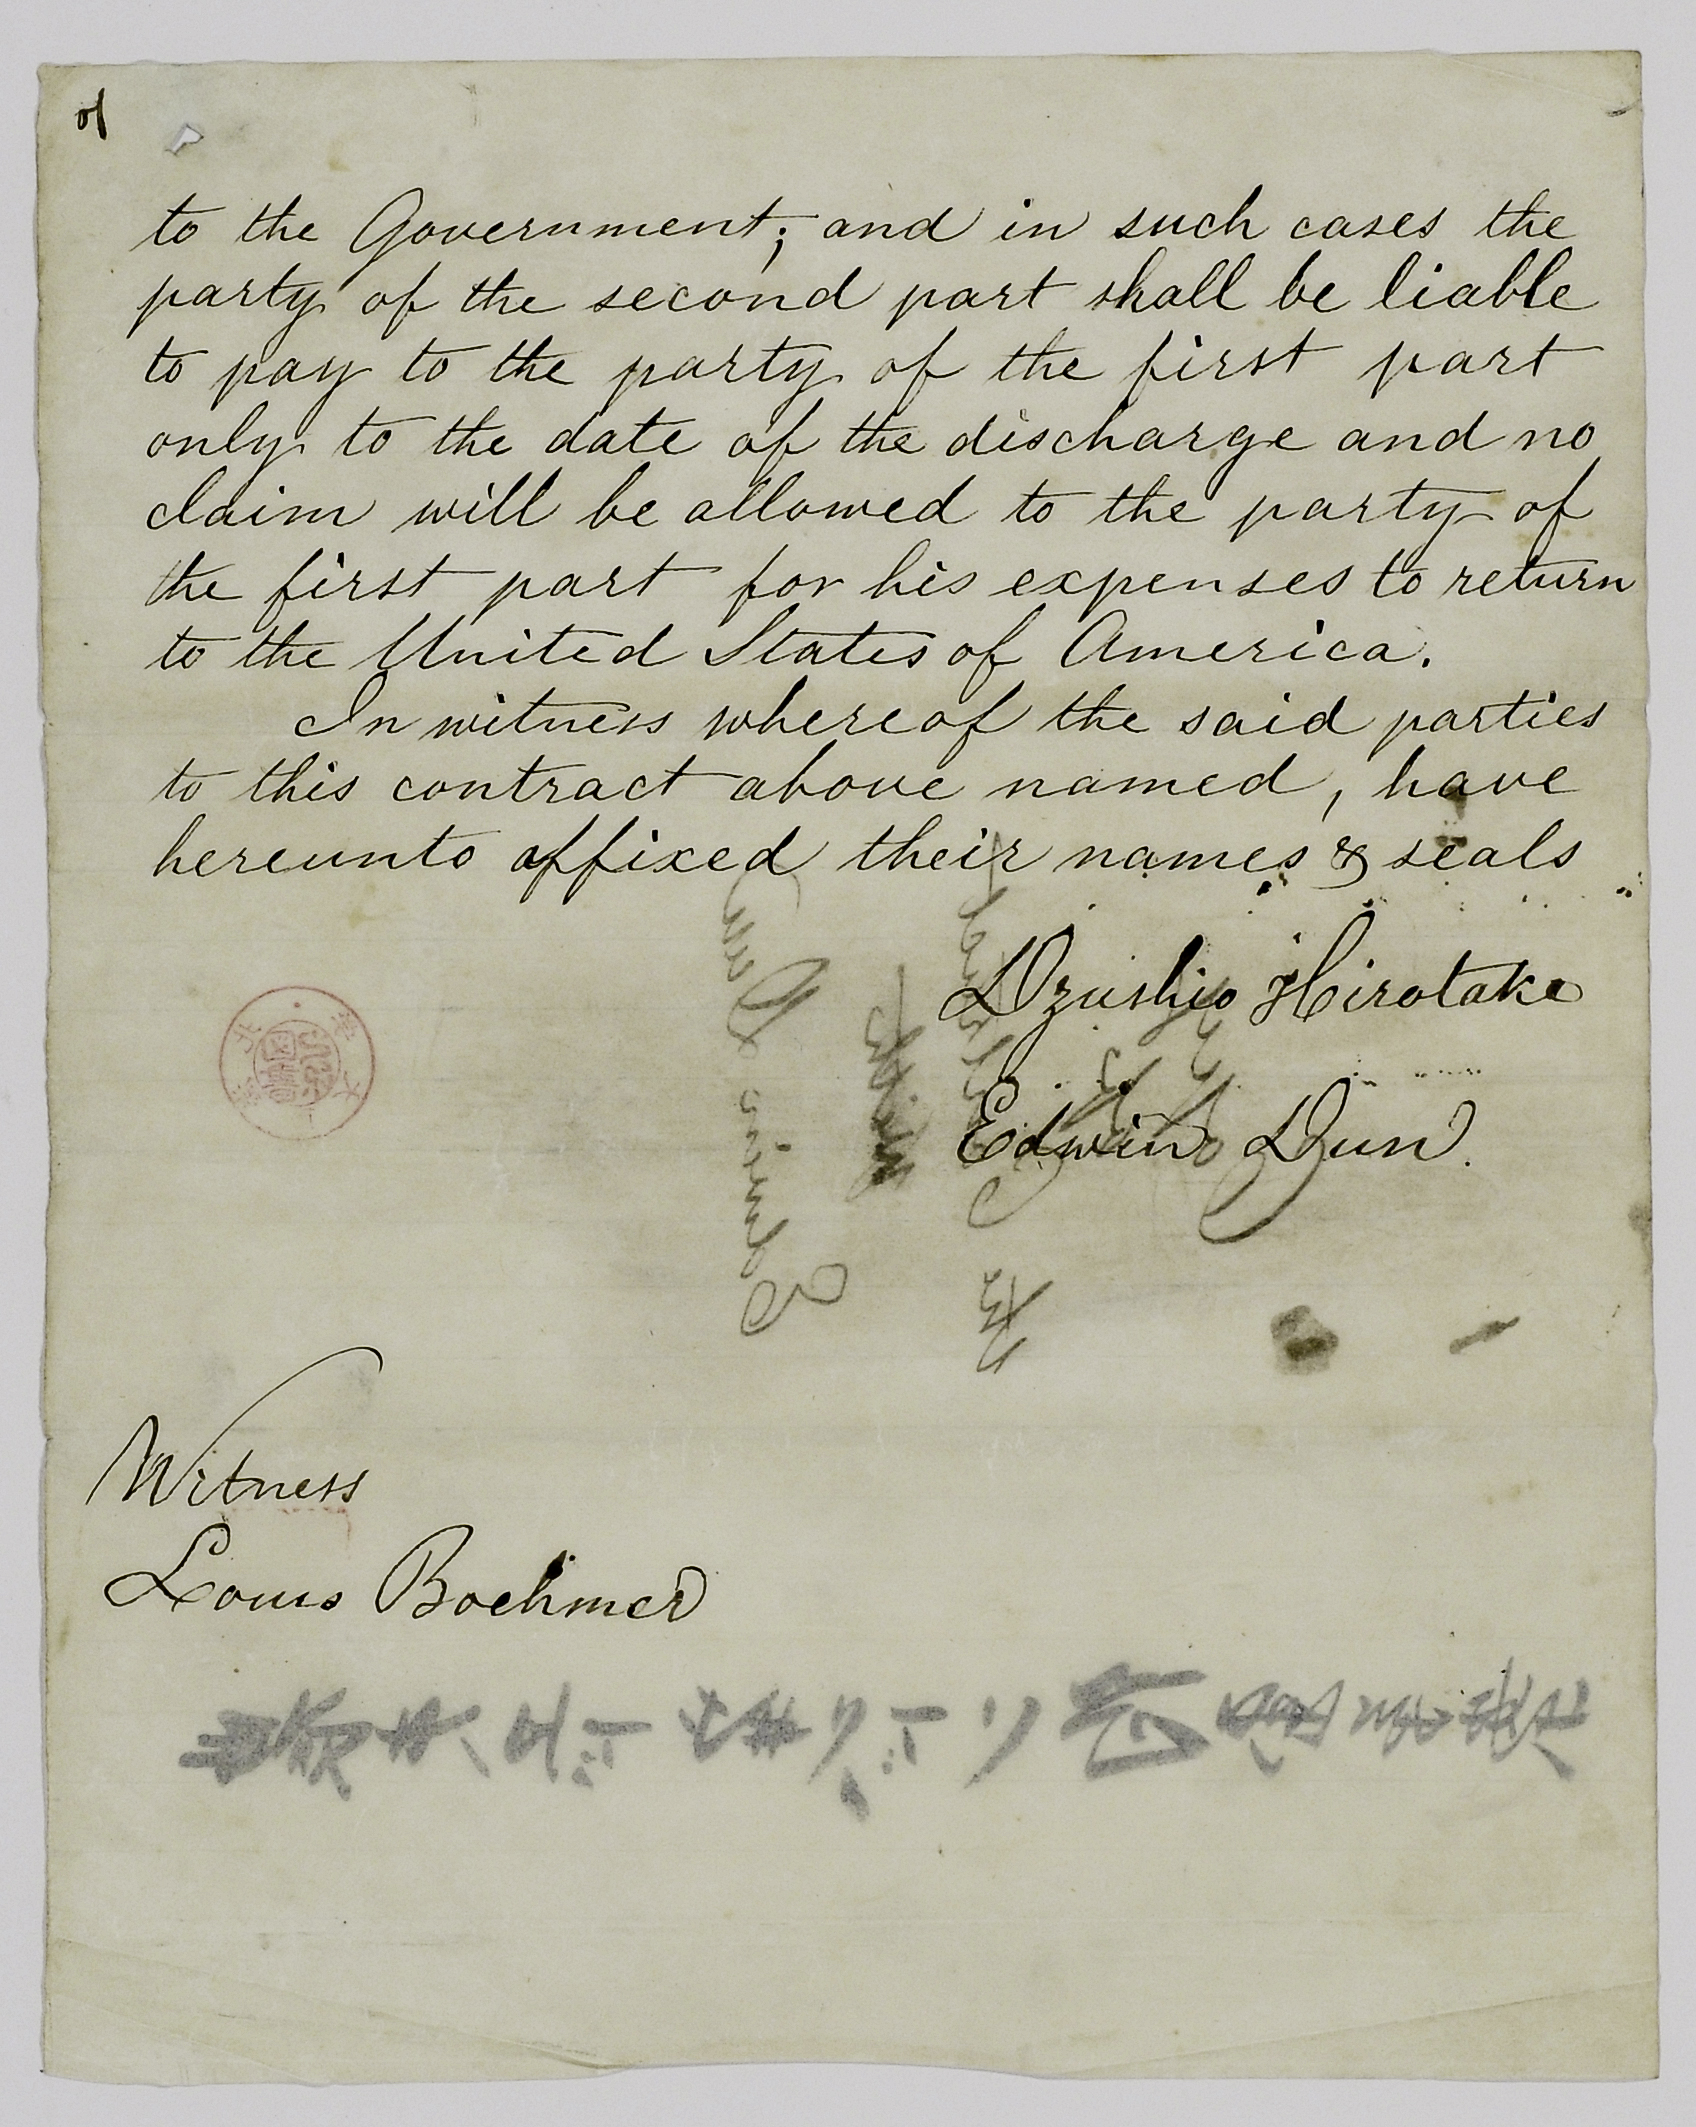 to the Government; and in such cases the
party of the second part shall be liable
to pay to the party of the first part
only to the date of the discharge and no
claim will be allowed to the party of
the first part for his expenses to return
to the United States of America.
In witness whereof the said parties
to this contract above named, have
hereunto affixed their names & seals
Dzushio Hirotake
Edwin Dun.
Witness
Louis Boehmer